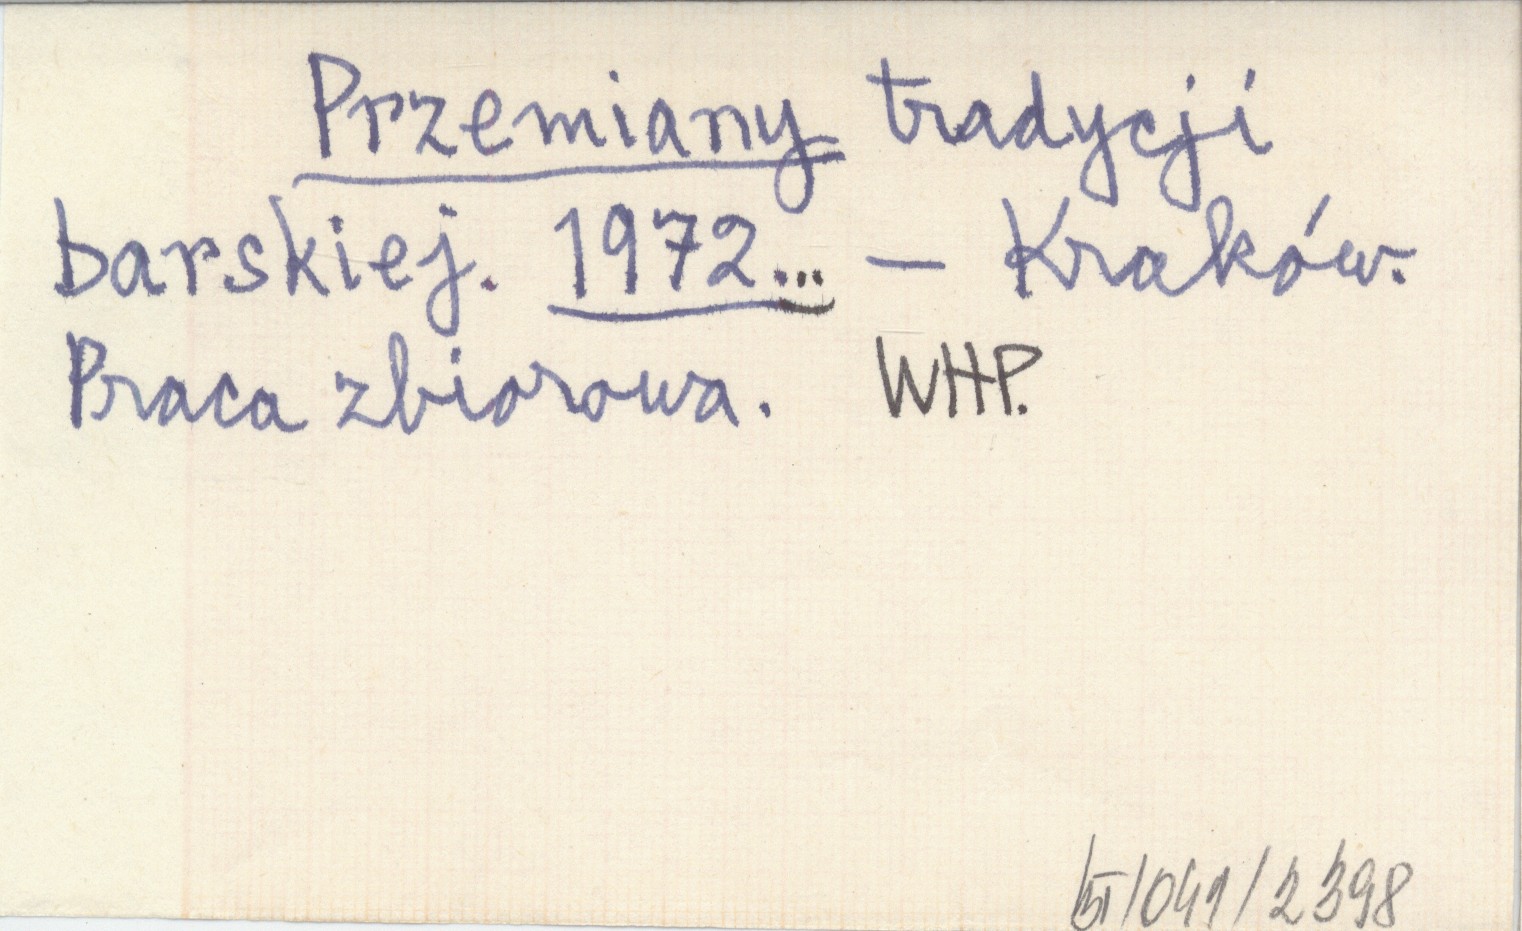 Przemiany tradycji
barskiej. 1972... — Kraków.
Praca zbiorowa. WHP.
/041/2398